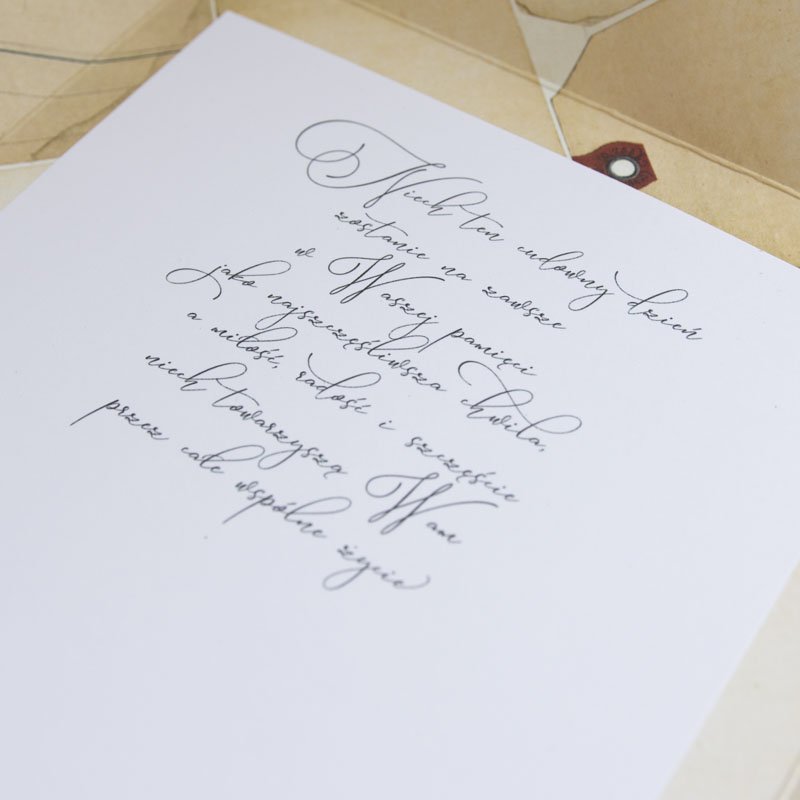 Niech ten cudowny dzień
zostanie na zawsze
w Waszej pamięci
jako najszczęśliwsza chwila,
a miłość, radość i szczęście
niech towarzyszą Wam
przez całe wspólne życie